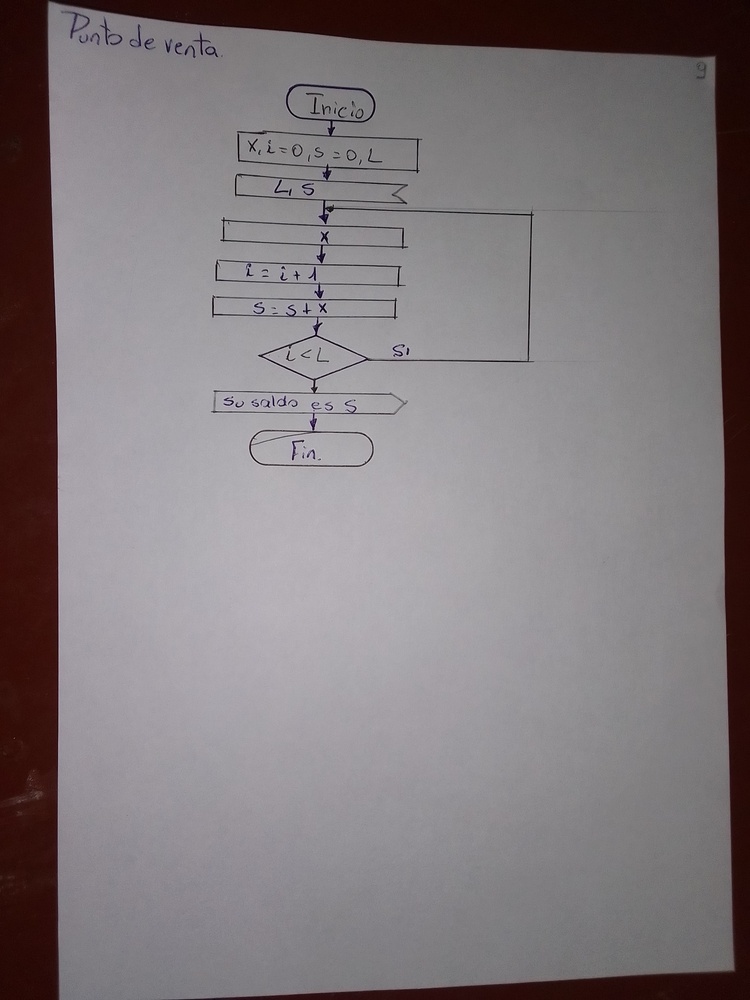 Punto de venta.
9
Inicio
x, i = 0, s = 0, L
L, S
x
i = i + 1
s = s + x
i < L
Si
su saldo es S
Fin.